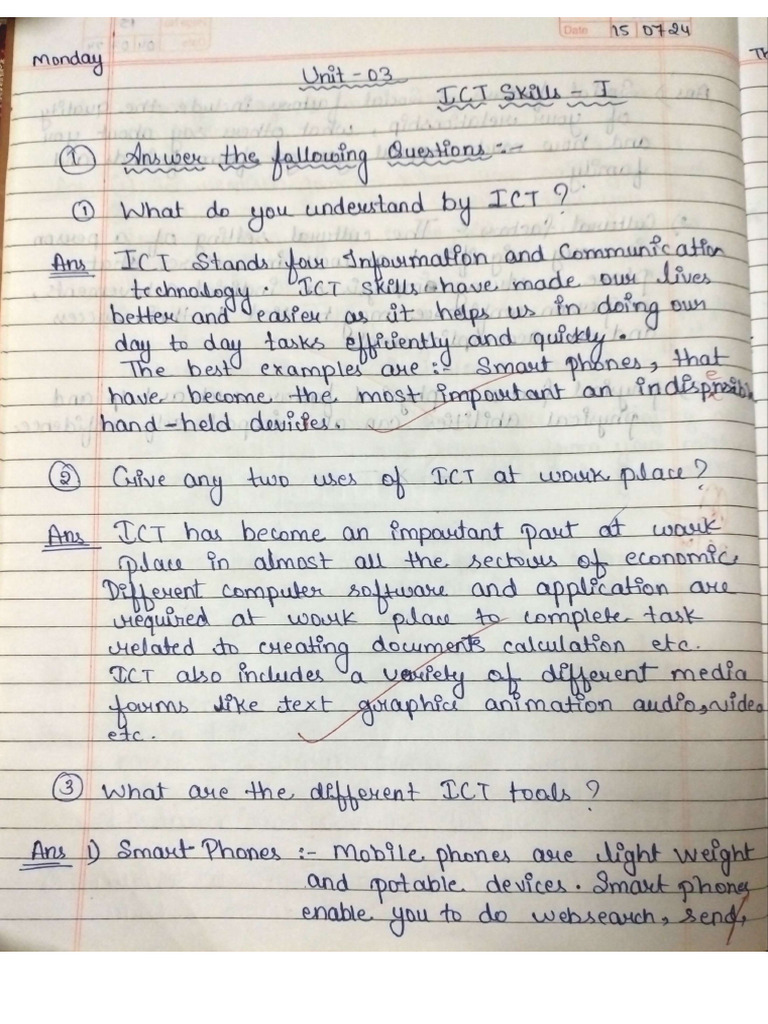 Date 15 07 24
Monday
Th
Unit - 03
ICT Skills - I
① Answer the following Questions :-
① What do you understand by ICT ?
Ans ICT Stands for Information and Communication
technology. ICT skills have made our lives
better and easier as it helps us in doing our
day to day tasks efficiently and quickly.
The best examples are :- Smart phones, that
have become the most important an
hand-held devices.
② Give any two uses of ICT at work place ?
Ans ICT has become an important part at work
place in almost all the sectors of economic.
Different computer software and application are
required at work place to complete task
related to creating documents calculation etc.
ICT also includes a variety of different media
forms like text graphic animation audio, video
etc.
③ What are the different ICT tools ?
Ans 1) Smart Phones :- Mobile phones are light weight
and potable devices. Smart phones
enable you to do websearch, send,